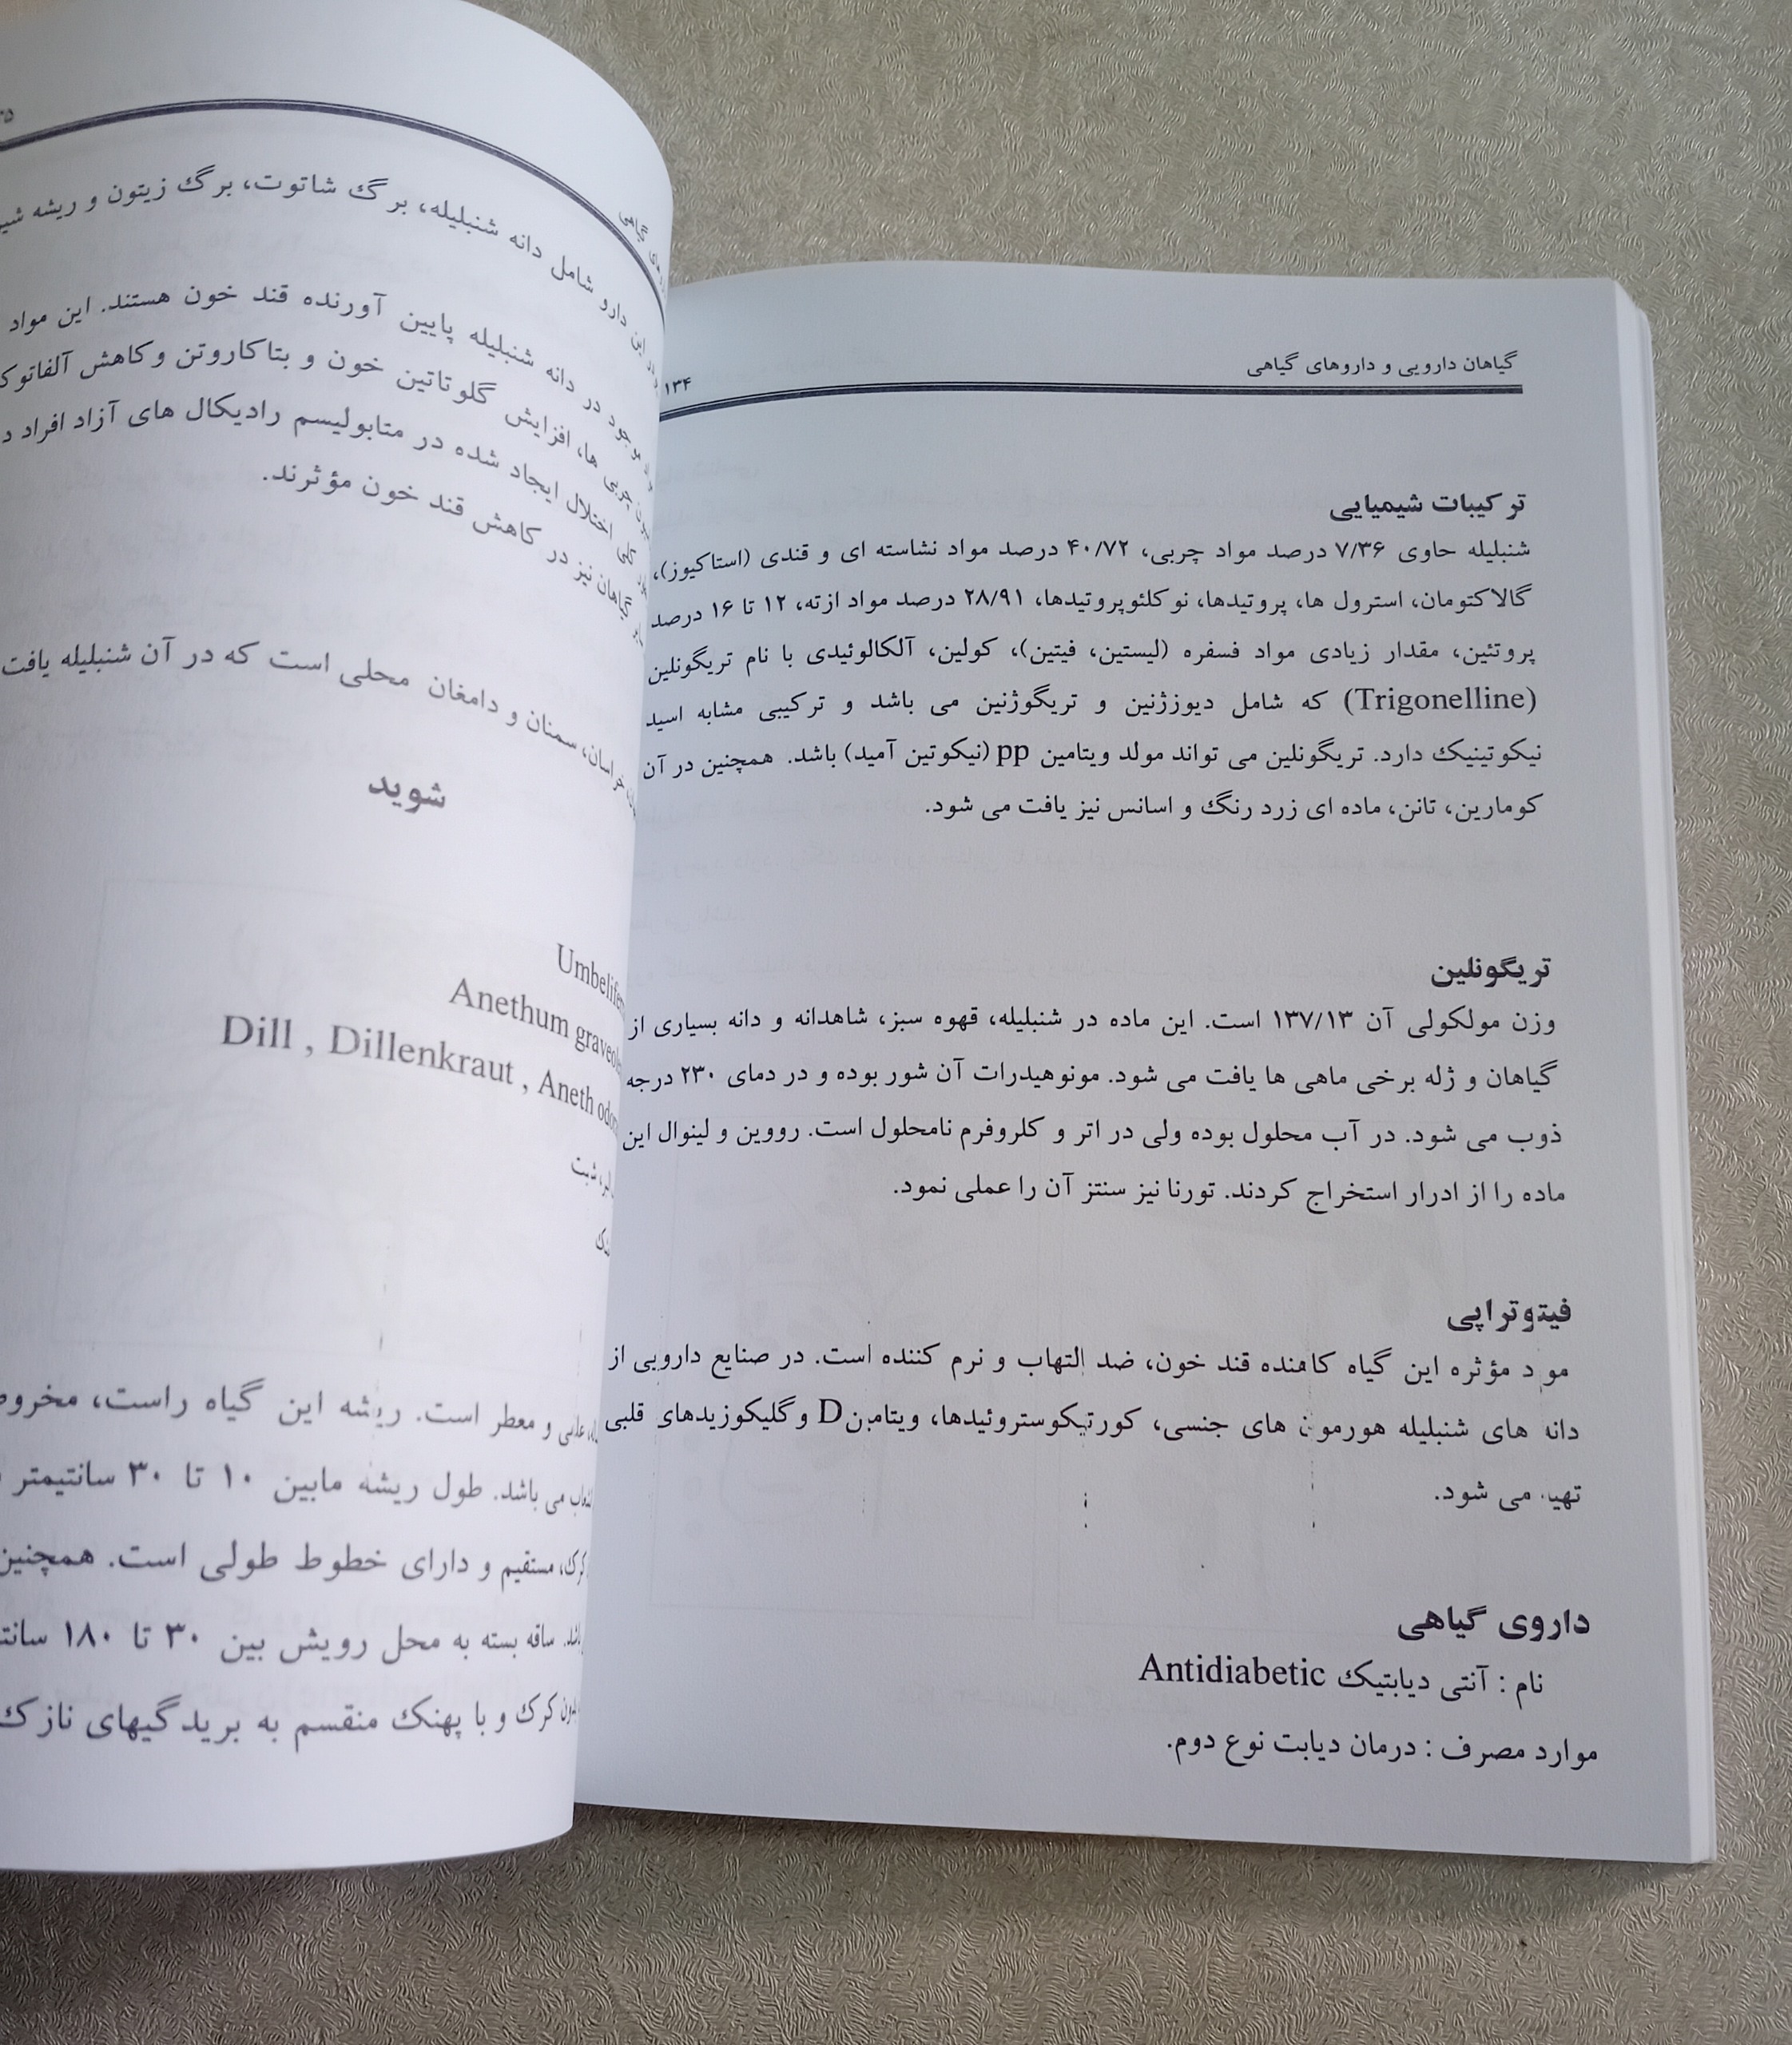 گیاهان دارویی و داروهای گیاهی
۱۳۴
ترکیبات شیمیایی
شنبلیله حاوی ۷/۳۶ درصد مواد چربی، ۴۰/۷۲ درصد مواد نشاسته ای و قندی (استاکیوز)،
گالاکتومان، استرول ها، پروتیدها، نوکلئوپروتیدها، ۲۸/۹۱ درصد مواد ازته، ۱۲ تا ۱۶ درصد
پروتئین، مقدار زیادی مواد فسفره (لیستین، فیتین)، کولین، آلکالوئیدی با نام تریگونلین
(Trigonelline) که شامل دیوزژنین و تریگوژنین می باشد و ترکیبی مشابه اسید
نیکوتینیک دارد. تریگونلین می تواند مولد ویتامین pp (نیکوتین آمید) باشد. همچنین در آن
کومارین، تانن، ماده ای زرد رنگ و اسانس نیز یافت می شود.
تریگونلین
وزن مولکولی آن ۱۳۷/۱۳ است. این ماده در شنبلیله، قهوه سبز، شاهدانه و دانه بسیاری از
گیاهان و ژله برخی ماهی ها یافت می شود. مونوهیدرات آن شور بوده و در دمای ۲۳۰ درجه
ذوب می شود. در آب محلول بوده ولی در اتر و کلروفرم نامحلول است. رووین و لینوال این
ماده را از ادرار استخراج کردند. تورنا نیز سنتز آن را عملی نمود.
فیتوتراپی
مواد مؤثره این گیاه کاهنده قند خون، ضد التهاب و نرم کننده است. در صنایع دارویی از
دانه های شنبلیله هورمون های جنسی، کورتیکوستروئیدها، ویتامین D و گلیکوزیدهای قلبی
تهیه می شود.
داروی گیاهی
نام : آنتی دیابتیک Antidiabetic
موارد مصرف : درمان دیابت نوع دوم.
این دارو شامل دانه شنبلیله، برگ شاتوت، برگ زیتون و ریشه
موجود در دانه شنبلیله پایین آورنده قند خون هستند. این مواد
چربی ها، افزایش گلوتاتین خون و بتاکاروتن و کاهش
اختلال ایجاد شده در متابولیسم رادیکال های آزاد افراد
گیاهان نیز در کاهش قند خون مؤثرند.
خراسان، سمنان و دامغان محلی است که در آن شنبلیله یافت
شوید
Anethum
Dill , Dillenkraut , Aneth
شبت
و معطر است. ریشه این گیاه راست،
می باشد. طول ریشه مابین ۱۰ تا ۳۰ سانتیمتر
کرک، مستقیم و دارای خطوط طولی است. همچنین
ساقه بسته به محل رویش بین ۳۰ تا ۱۸۰
بدون کرک و با پهنک منقسم به بریدگیهای نازک